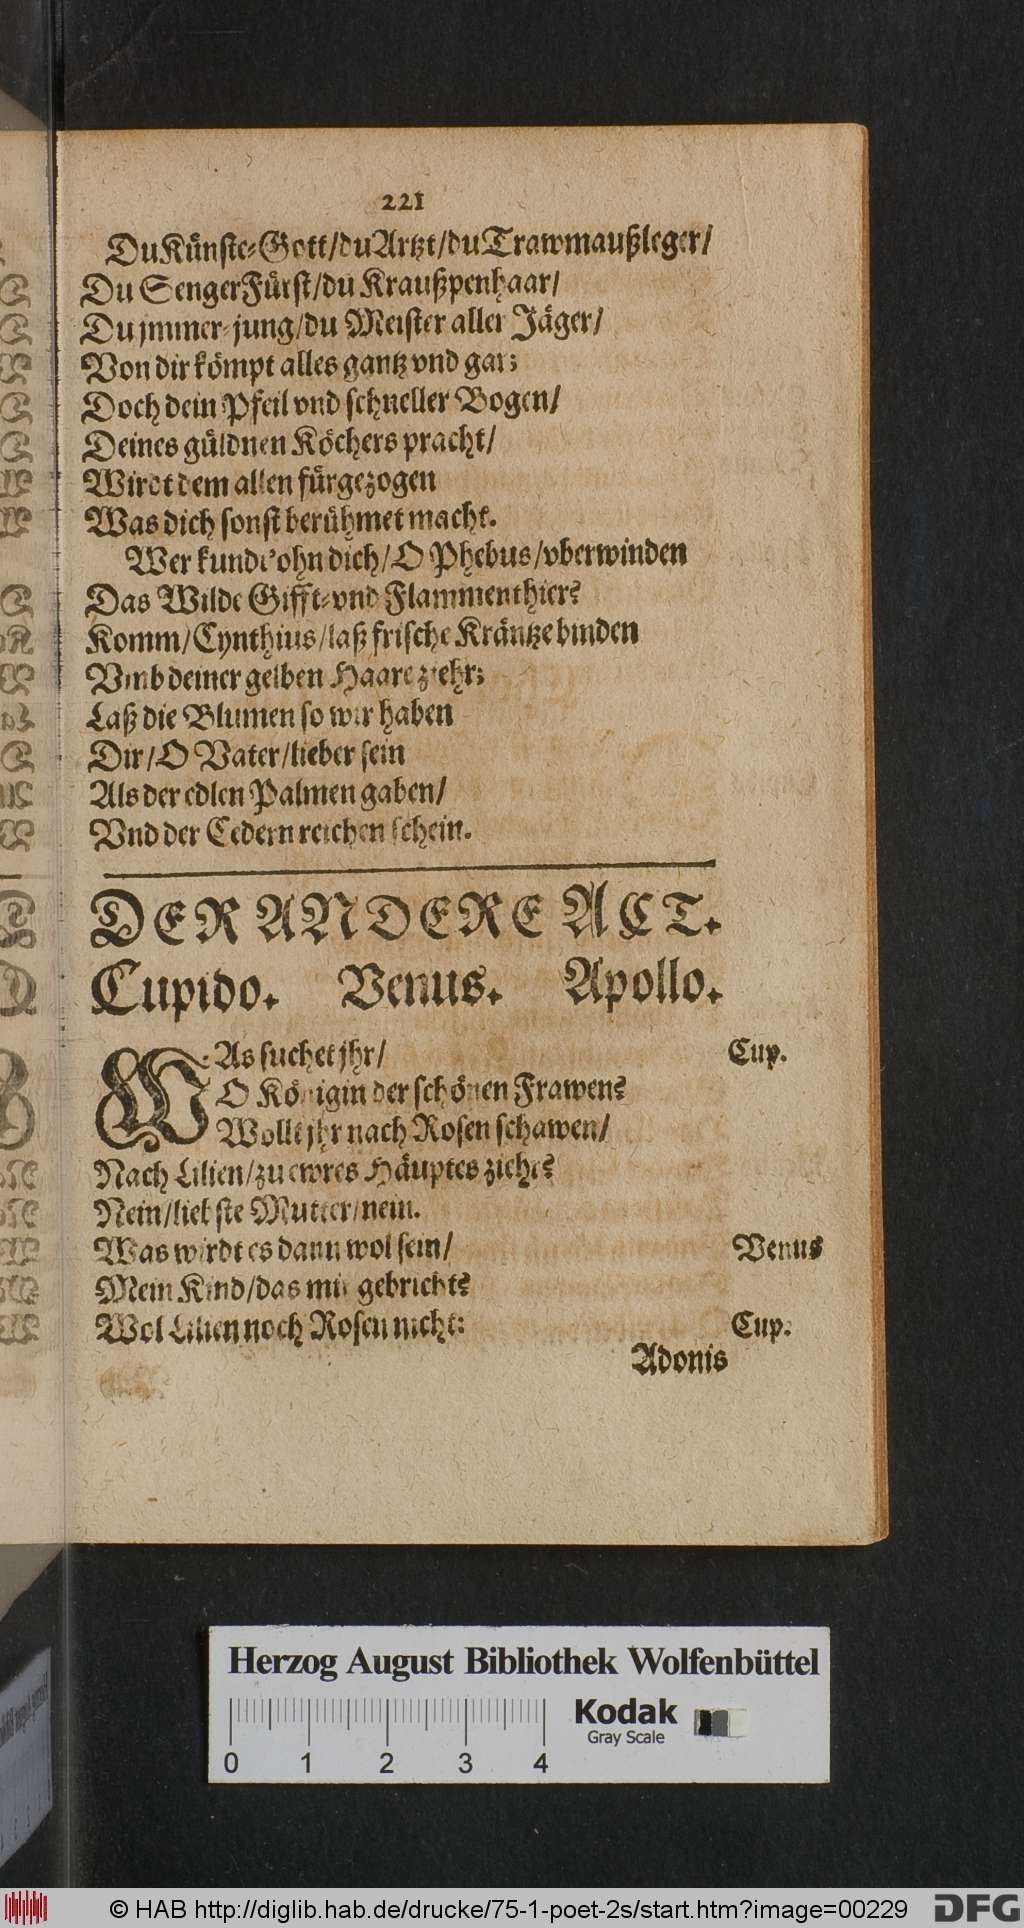 221
Du Künste-Gott/du Artzt/du Trawmaußleger/
Du SengerFürst/du Kraußpenhaar/
Du jmmer-jung/du Meister aller Jäger/
Von dir kömpt alles gantz vnd gar;
Doch dein Pfeil vnd schneller Bogen/
Deines güldnen Köchers pracht/
Wirdt dem allen fürgezogen
Was dich sonst berühmet macht.
Wer kundt'ohn dich/O Phebus/vberwinden
Das Wilde Gifft-vnd Flammenthier?
Komm/Cynthius/laß frische Kräntze binden
Vmb deiner gelben Haare ziehr;
Laß die Blumen so wir haben
Dir/O Vater/lieber sein
Als der edlen Palmen gaben/
Vnd der Cedern reichen schein.
DER ANDERE ACT.
Cupido. Venus. Apollo.
WAs suchet jhr/ Cup.
O Königin der schönen Frawen?
Wollt jhr nach Rosen schawen/
Nach Lilien/zu ewres Häuptes ziehr?
Nein/liebste Mutter/nein.
Was wirdt es dann wol sein/ Venus
Mein Kind/das mir gebricht?
Wol Lilien noch Rosen nicht: Cup.
Adonis
Herzog August Bibliothek Wolfenbüttel
Kodak
Gray Scale
0 1 2 3 4
© HAB http://diglib.hab.de/drucke/75-1-poet-2s/start.htm?image=00229
DFG